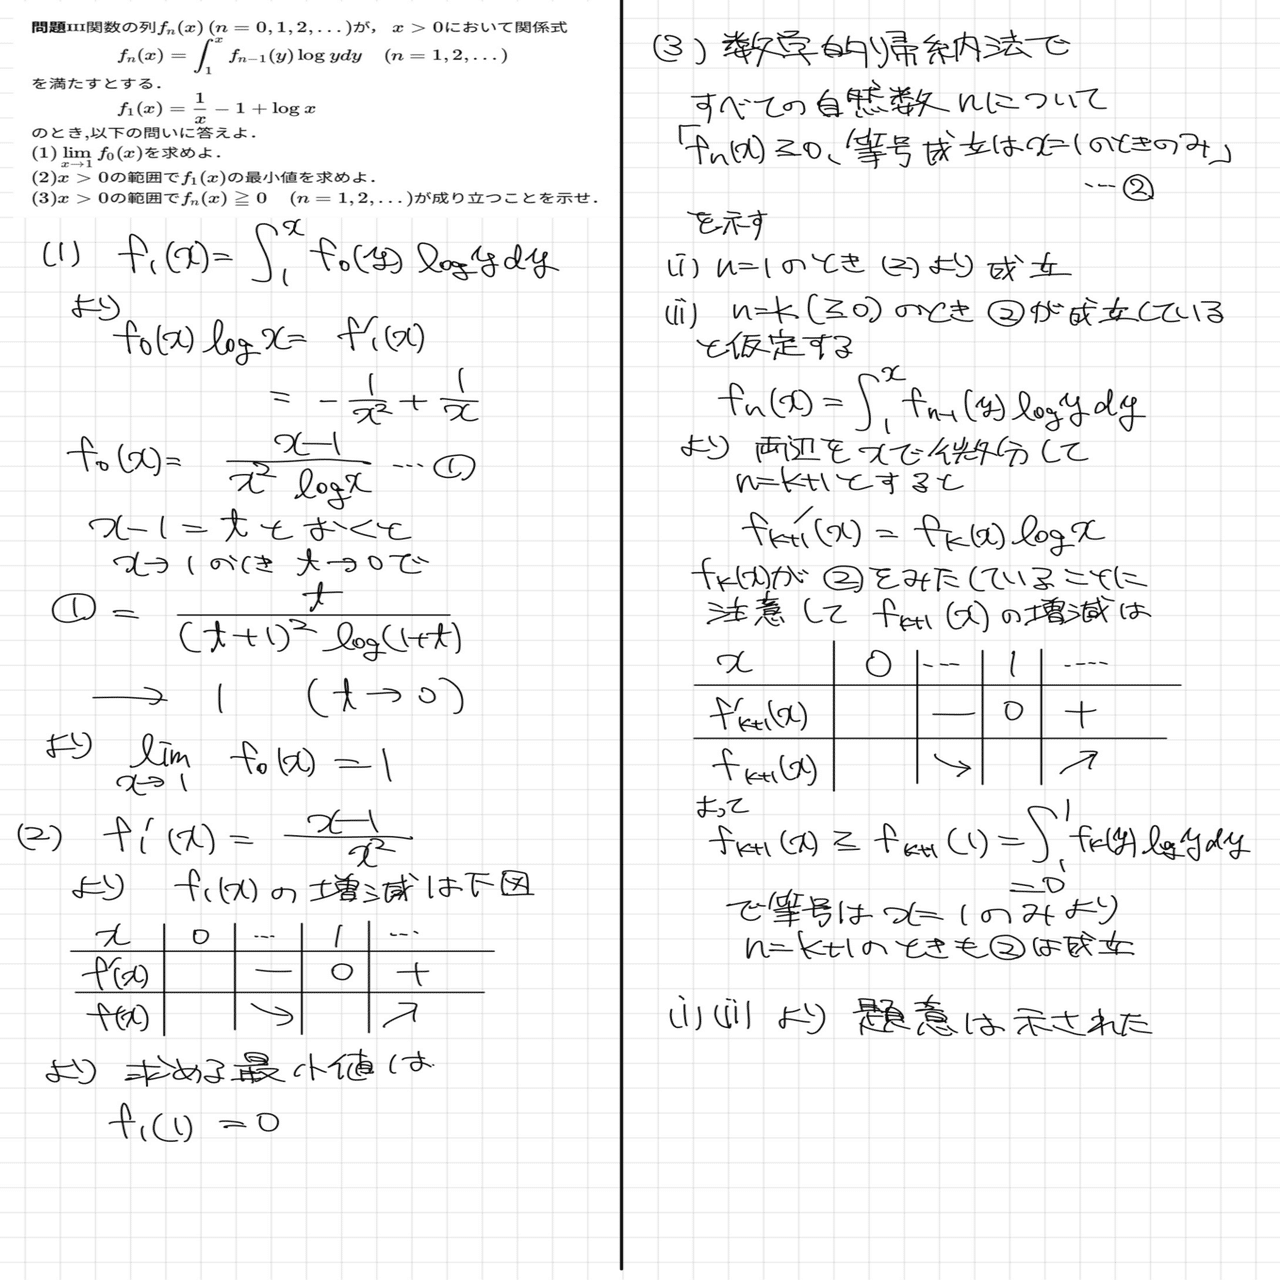 問題III関数の列fₙ(x) (n = 0, 1, 2, . . .)が, x > 0において関係式
fₙ(x) = ∫₁ˣ fₙ₋₁(y) log ydy (n = 1, 2, . . .)
を満たすとする.
f₁(x) = 1/x − 1 + log x
のとき,以下の問いに答えよ.
(1) lim_{x→1} f₀(x)を求めよ.
(2)x > 0の範囲でf₁(x)の最小値を求めよ.
(3)x > 0の範囲でfₙ(x) ≧ 0 (n = 1, 2, . . .)が成り立つことを示せ.
(1) f₁(x)= ∫₁ˣ f₀(y) log y dy
より
f₀(x) log x = f₁'(x)
= − 1/x² + 1/x
f₀(x)= (x−1)/(x² log x) … ①
x−1 = t とおくと
x→1 のとき t→0で
① = t/((t+1)² log(1+t))
→ 1 (t→0)
より lim_{x→1} f₀(x) = 1
(2) f₁'(x) = (x−1)/x²
より f₁(x) の増減は下図
x | 0 | … | 1 | …
f'(x) | | − | 0 | +
f(x) | | ↘ | | ↗
より 求める最小値は
f₁(1) = 0
(3) 数学的帰納法で
すべての自然数 n について
「fₙ(x) ≥ 0、等号成立は x=1 のときのみ」
… ②
を示す
(i) n=1 のとき (2) より 成立
(ii) n=k (≥0) のとき ②が成立している
と仮定する
fₙ(x) = ∫₁ˣ fₙ₋₁(y) log y dy
より 両辺を x で微分して
n=k+1 とすると
fₖ₊₁'(x) = fₖ(x) log x
fₖ(x)が ②をみたしていることに
注意して fₖ₊₁(x) の増減は
x | 0 | … | 1 | ….
f'ₖ₊₁(x) | | − | 0 | +
fₖ₊₁(x) | | ↘ | | ↗
よって
fₖ₊₁(x) ≥ fₖ₊₁(1) = ∫₁¹ fₖ(y) log y dy
= 0
で等号は x=1 のみより
n=k+1 のときも ②は成立
(i) (ii) より 題意は示された